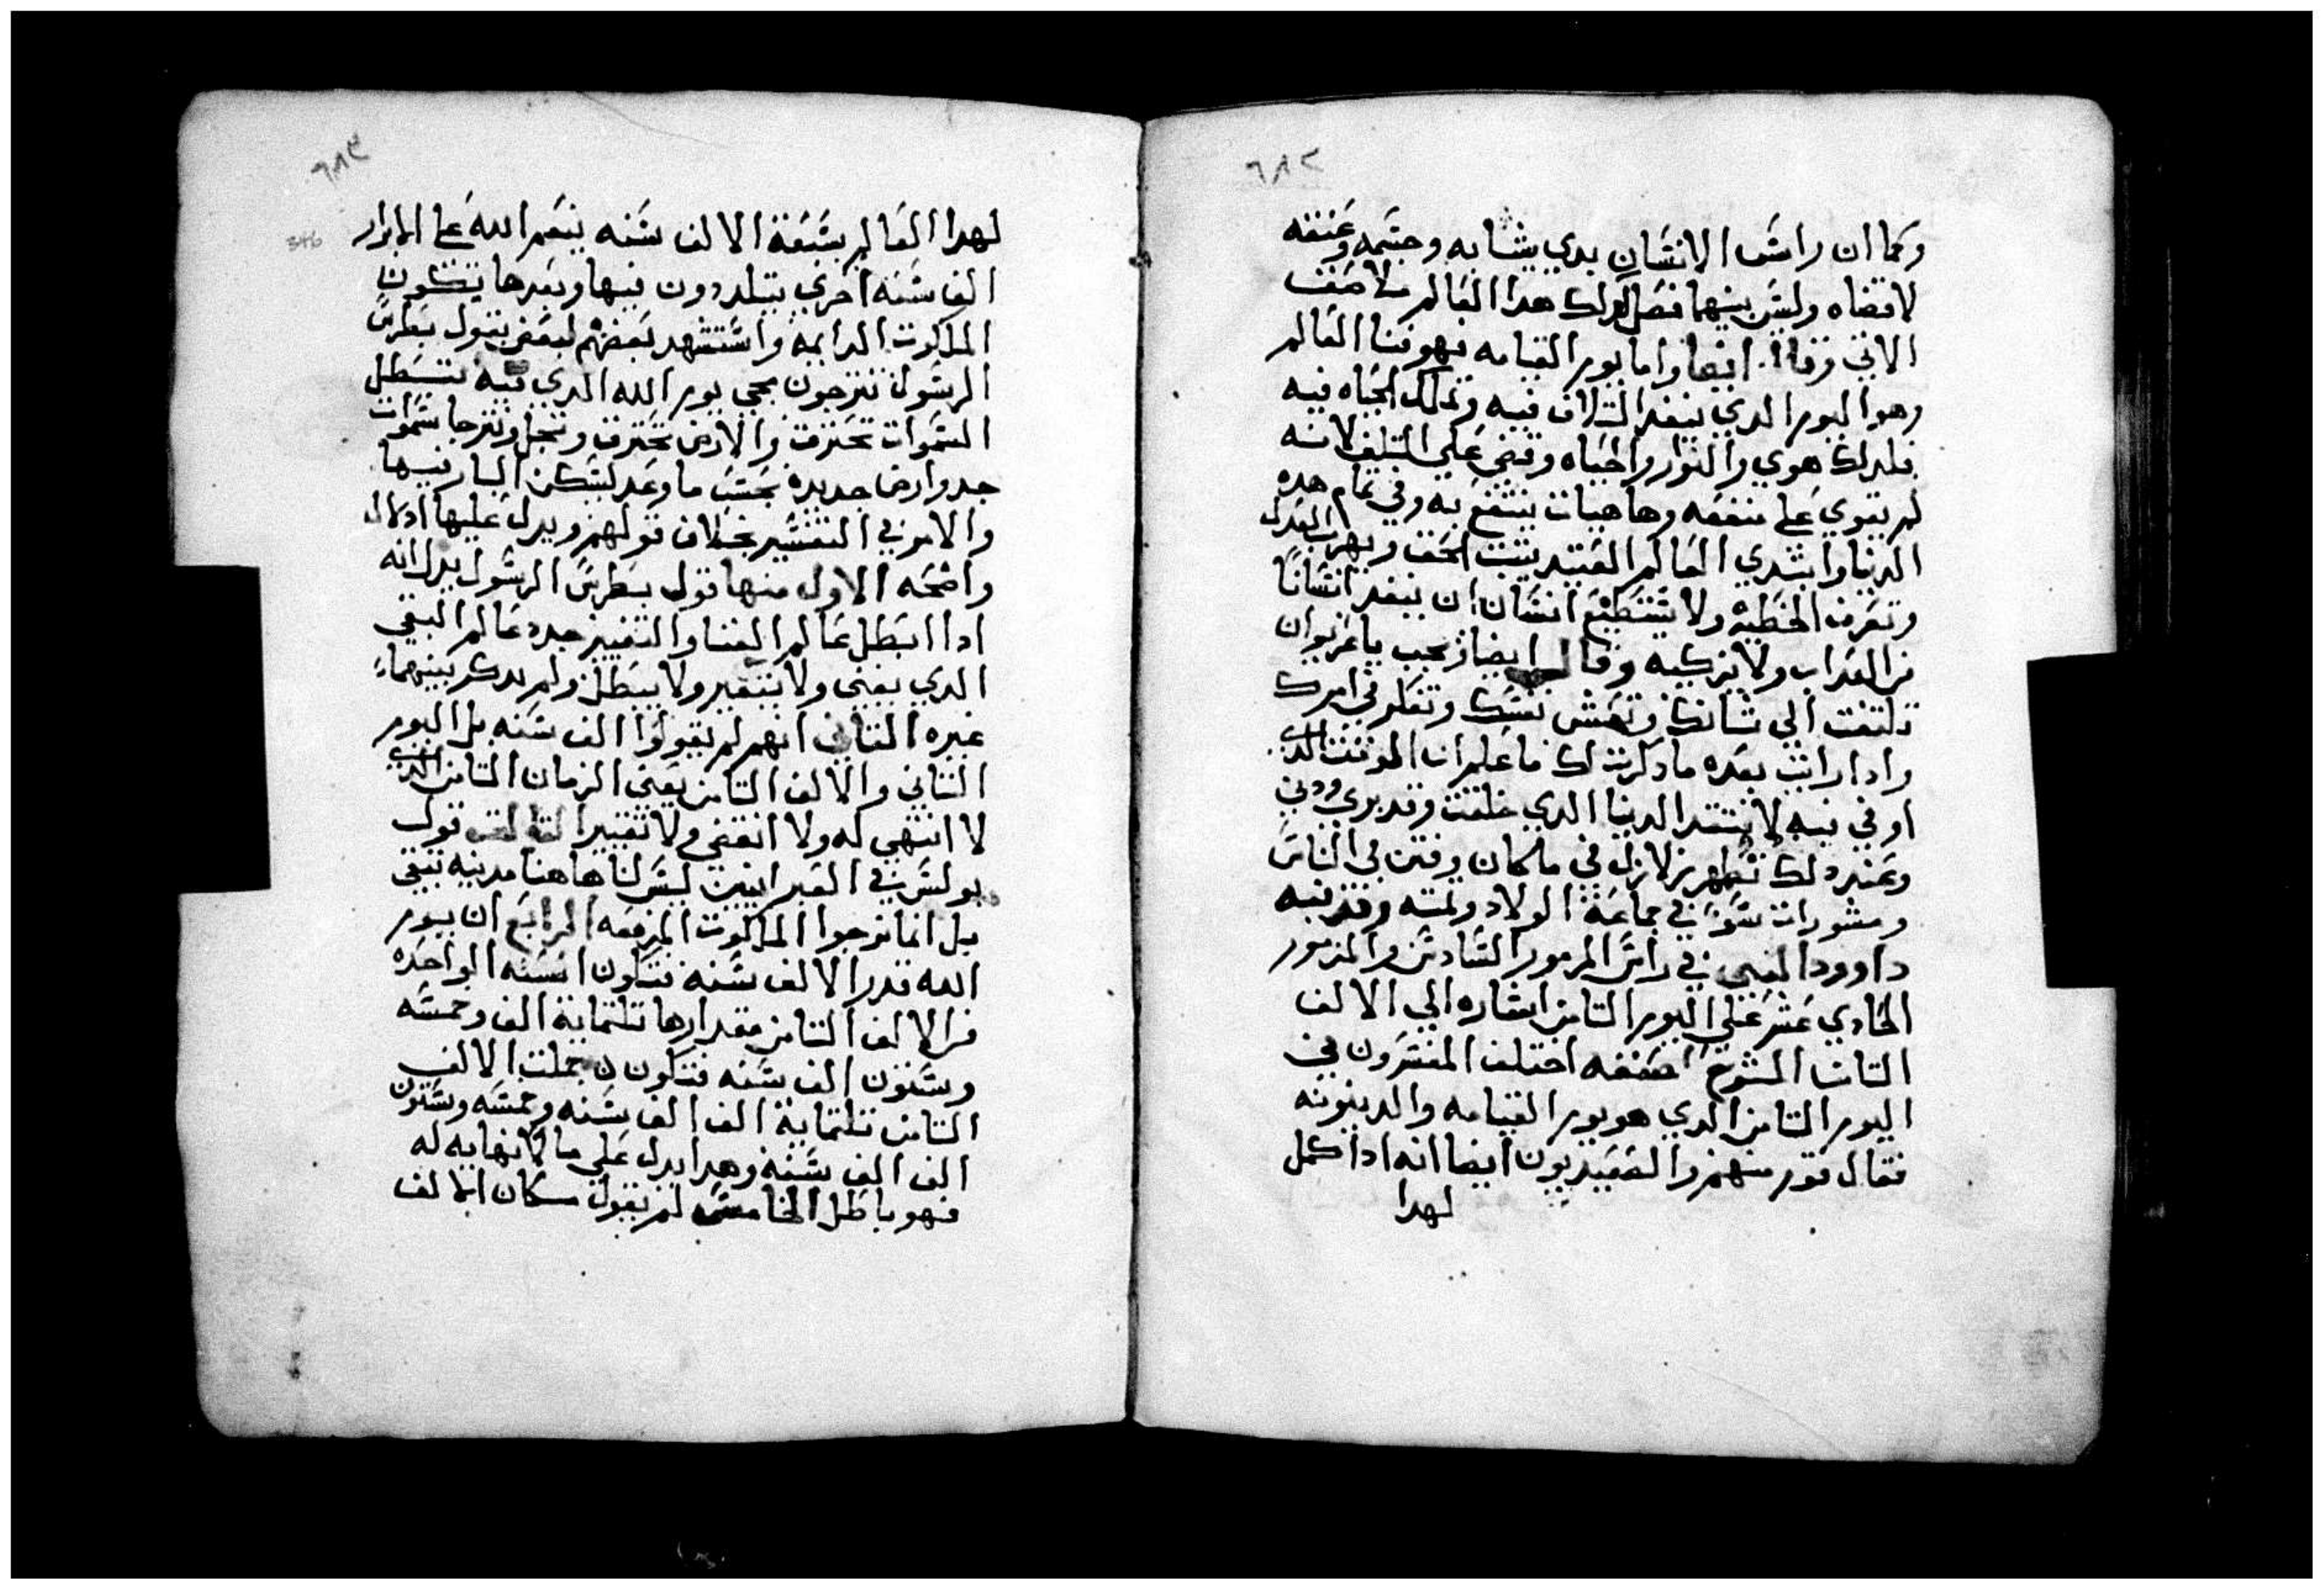 ٦٨٢
وكما ان راس الانسان بدي يشابه وجسمه وعنقه
لاقضاه وليس بينهما فصل كدلك هدا العالم ملاصق
الاتي وقال ايضا واما يوم القيامه فهو فنا العالم
وهو اليوم الدي ينفد التلاف فيه وتملك الحياه فيه
فلدلك هوي والتوار والحياه وقضي علي التلف لانه
لم يقوي علي منفعه وهاهيات ينتفع به وفي تمام هده
الدنيا وابتدي العالم العتيد يتبت الحق ويهرب العدل
وتعرف الخطيه ولا يستطيع انسان ان ينفد انسانا
من العداب ولا يزكيه وقال ايضا يجب ياعزيزان
تلتفت الي شانك وتفتش نفسك وتفكر في امرك
وادا رايت بعده مادكرت لك فاعلم ان الموقت الدي
اوفي فيه لا ينتقد الدنيا الدي خلقت وقد بري ودني
وعند دلك تظهر زلازل في مكان وفتن في الناس
ومشورات سوء في جماعة الولاد وتمته وقدر فيه
داوود النبي في راس المزمور السادس والمزمور
الحادي عشر علي اليوم التامن اشاره الي الالف
التامن الشرح اضعفه اختلف المفسرون في
اليوم التامن الدي هو يوم القيامه والدينونه
فقال قوم منهم والصعيديون ايضا انه ادا كمل
لهدا
٦٨٣
346
لهدا العالم سبعة الالف سنه ينعم الله علي الابرار
الف سنه اخري يتلددون فيها وبعدها يتكون
الملكوت الدايمه واستشهد بعضهم لبعض بقول بطرس
الرسول تترجون مجي يوم الله الدي فيه تتبطل
السموات تحترق والارض تحترق وتنحل ونترجا سموات
جدد وارض جديده بحسب ما وعد ليسكن البار فيها
والامر في التفسير بخلاف قولهم ويدل عليها ادلال
واضحه الاول منها قول بطرس الرسول يدل انه
ادا ابطل عالم الفنا والتغيير جدد عالم البقي
الدي يفني ولا يتغير ولا يبطل ولم يدكر بينهما
غيره التاني انهم لم يقولوا الف سنه بل اليوم
التاني والالف التامن يعني الزمان التامن الدي
لا انتهي له ولا انقضي ولا تغيير التالت قول
بولس في العبرانيين ليس لنا هاهنا مدينه تبقي
بل انما نرجوا الملكوت المزمعه الرابع ان يوم
الله قدر الالف سنه فتكون السنه الواحده
من الالف التامن مقدارها تلتماية الف وخمسه
وستون الف سنه فتكون جملت الالف
التامن تلتماية الف الف سنه وخمسه وستون
الف الف سنه وهدا يدل علي ما لا نهايه له
فهو باطل الخامس لم يقول مكان الالف